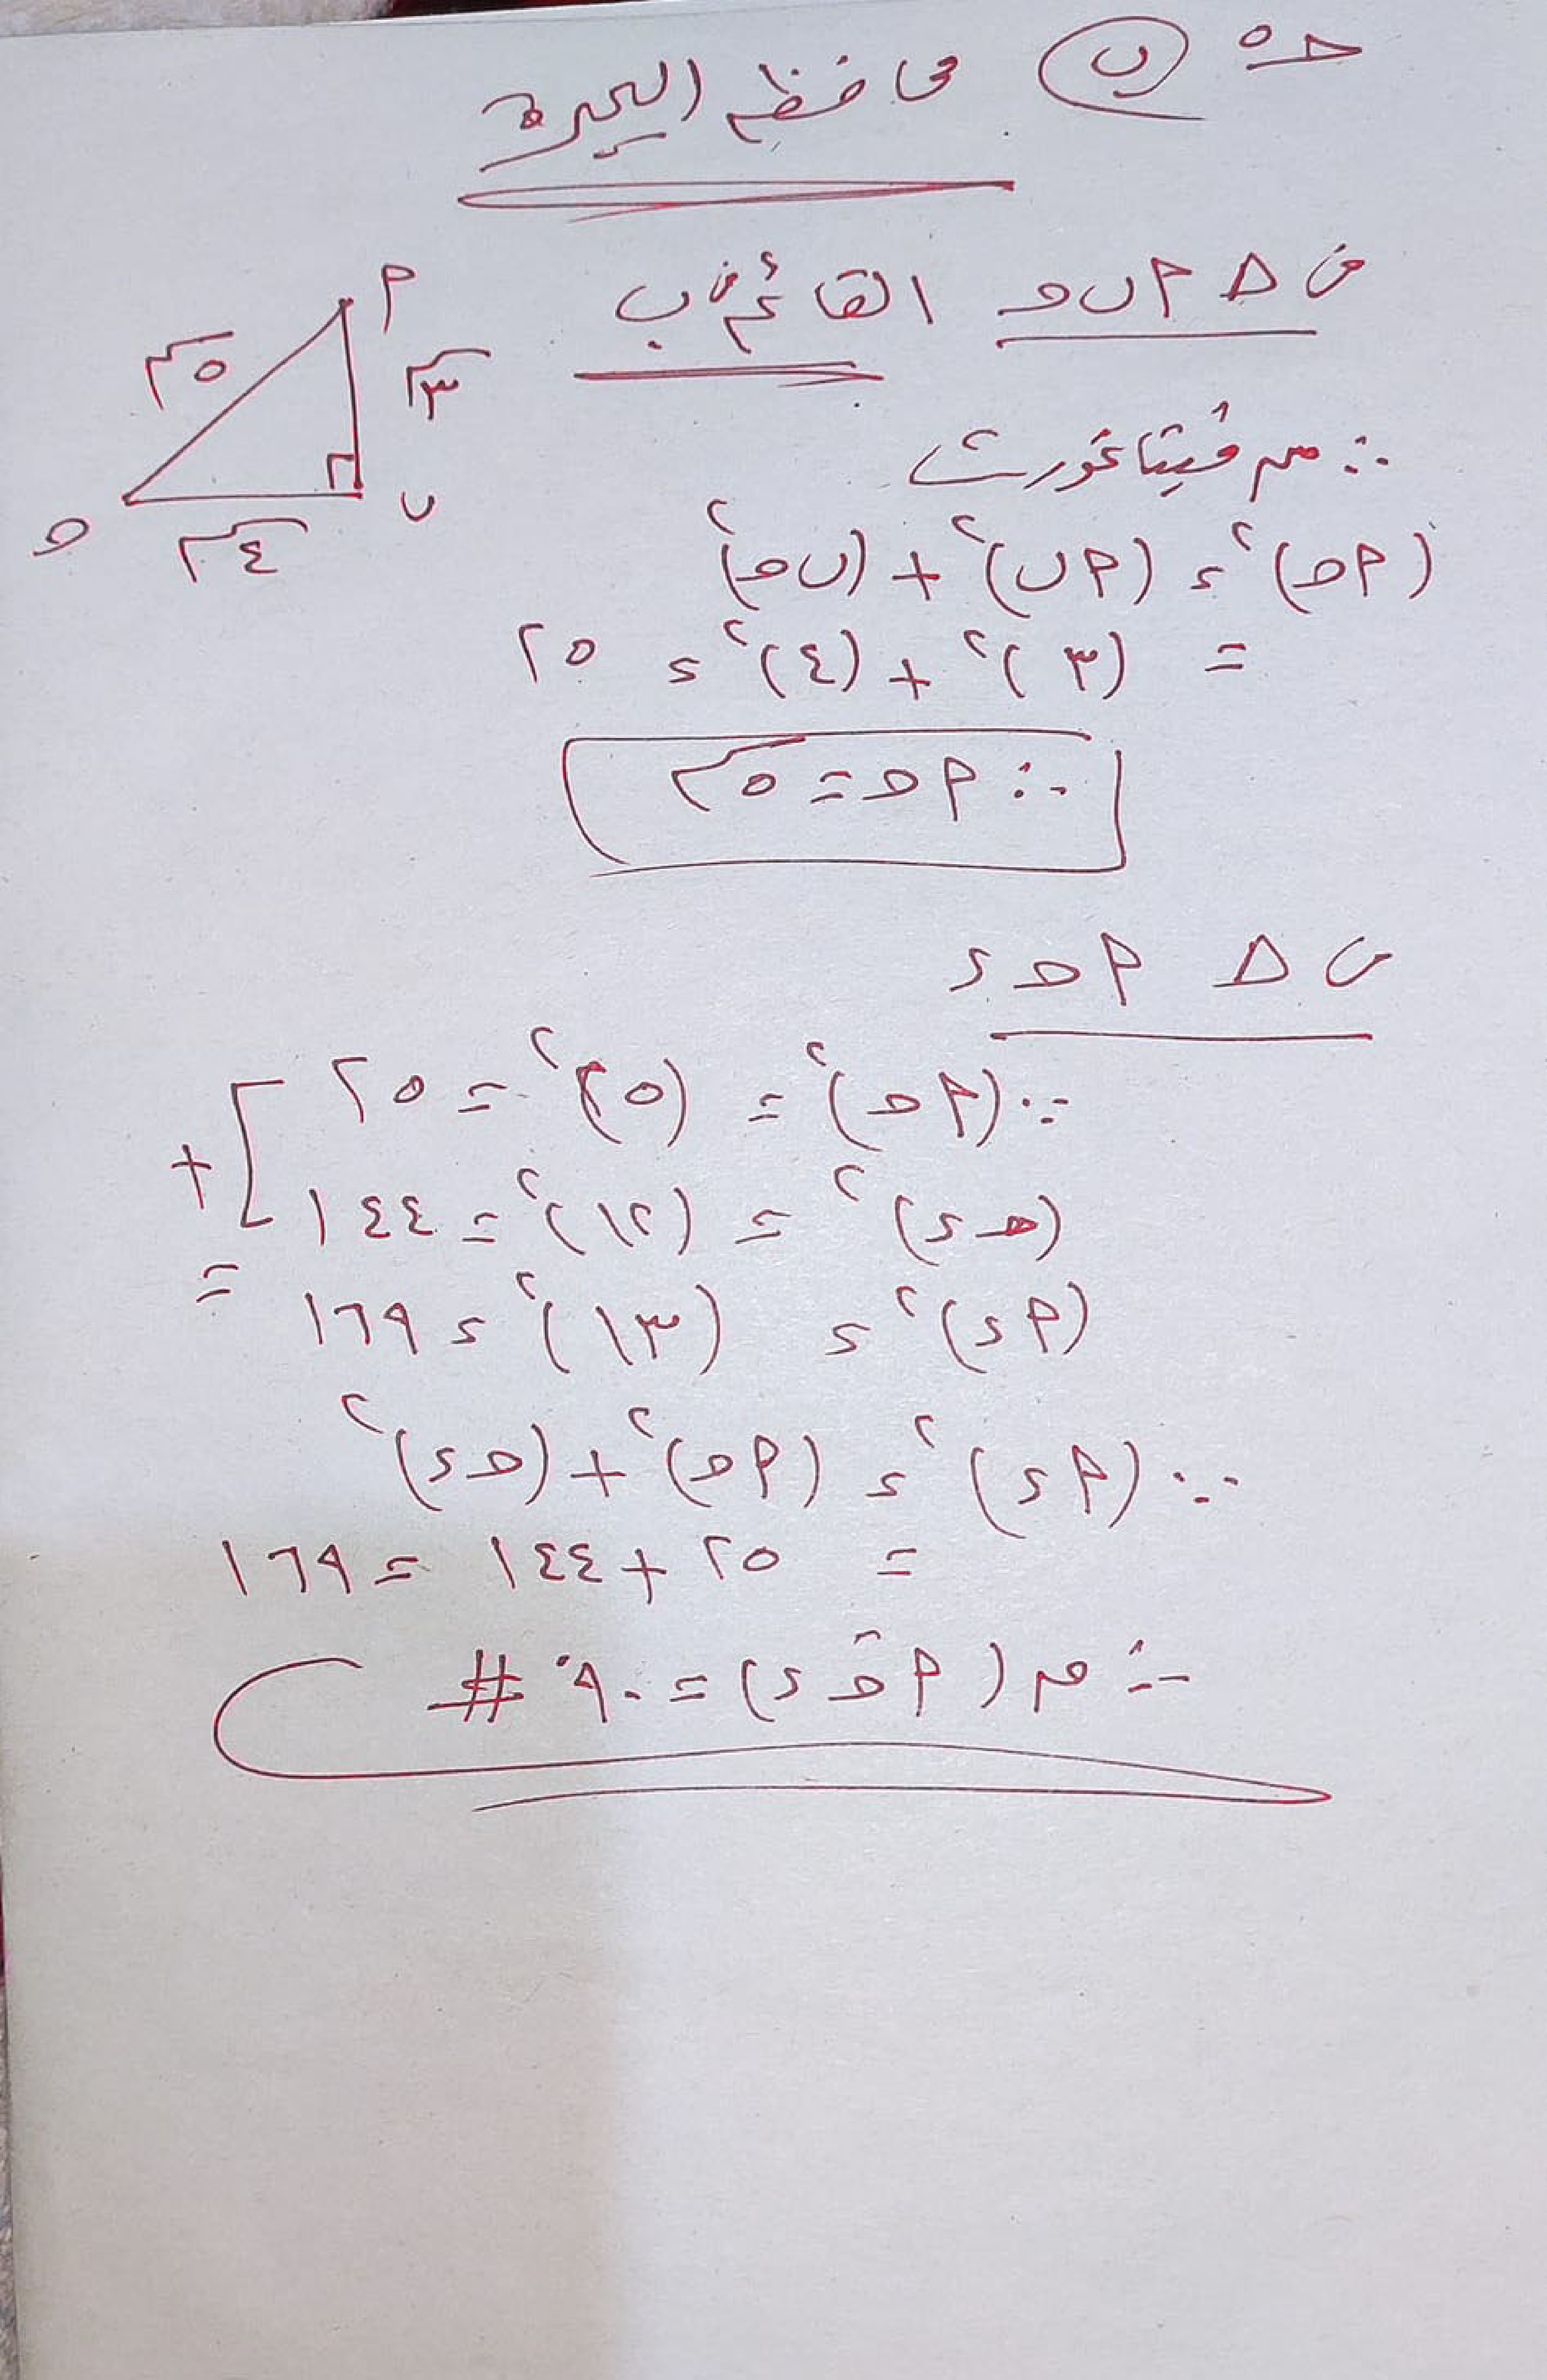 حـ٥ (ب) محافظة البحيرة
فى Δ أ ب حـ القائم فى ب
أ
٣سم
٥سم
ب
٤سم
حـ
∴ من فيثاغورث
(أ حـ)² = (أ ب)² + (ب حـ)²
= (٣)² + (٤)² = ٢٥
∴ أ حـ = ٥سم
فى Δ أ حـ ء
∵ (أ حـ)² = (٥)² = ٢٥
(حـ ء)² = (١٢)² = ١٤٤
+
=
(أ ء)² = (١٣)² = ١٦٩
∵ (أ ء)² = (أ حـ)² + (حـ ء)²
= ٢٥ + ١٤٤ = ١٦٩
∴ م (أ حـ^ ء) = ٩٠° #